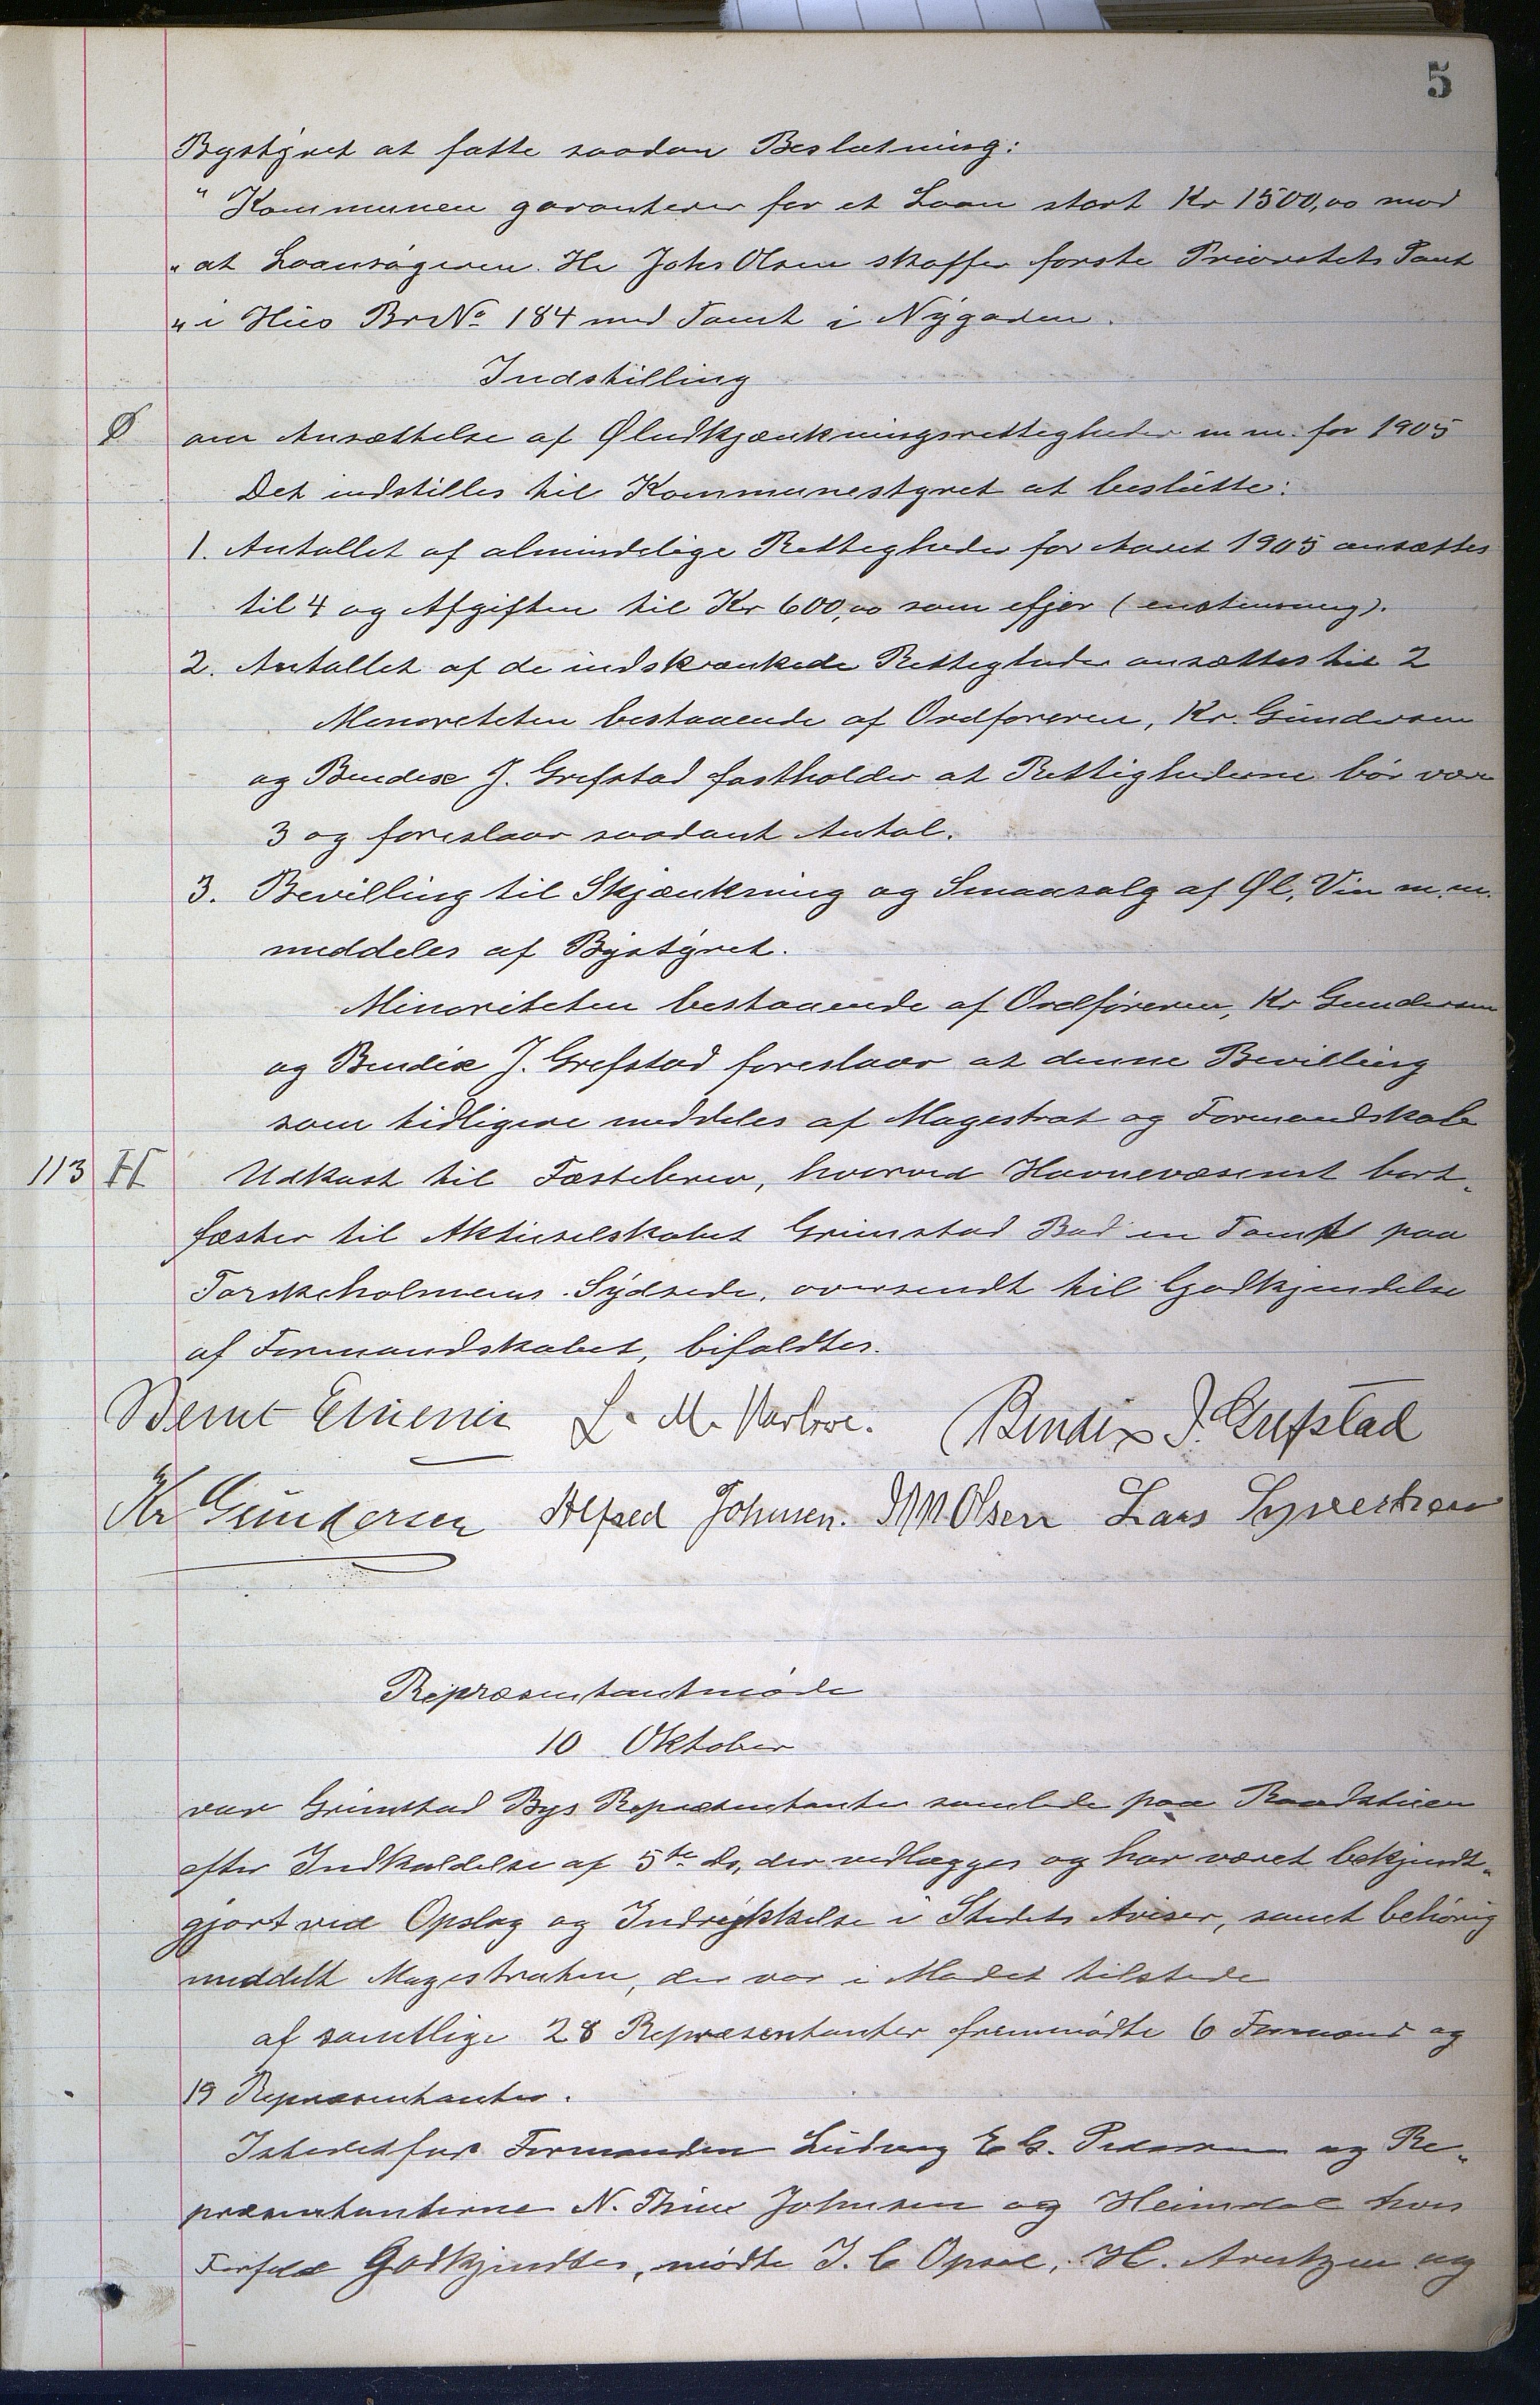 5
Bystyret at fatte saadan Beslutning:
"Kommunen garanterer for et Laan stort Kr 1500,00 mod
"at Laansøgeren Hr Johs Olsen skaffer første Prioritets Pant
"i Hus BrNo 184 med Tomt i Nygaden.
Indstilling
Ø om Ansættelse af Øludskjænkningsrettigheder m m. for 1905
Det indstilles til Kommunestyret at beslutte:
1. Antallet af almindelige Rettigheder for Aaret 1905 ansættes
til 4 og Afgiften til Kr 600,00 som ifjor (enstemmig).
2. Antallet af de indskrænkede Rettigheder ansættes til 2
Minoriteten bestaaende af Ordføreren, Kr. Gundersen
og Bendix J. Grefstad fastholder at Rettighederne bør være
3 og foreslaar saadant Antal.
3. Bevilling til Skjænkning og Smaasalg af Øl, Vin m.m.
meddeles af Bystyret.
Minoriteten bestaaende af Ordføreren, Kr Gundersen
og Bendix J. Grefstad foreslaar at denne Bevilling
som tidligere meddeles af Magistrat og Formandskab
113 H Udkast til Fæstebrev, hvorved Havnevæsenet bort-
fæster til Aktieselskabet Grimstad Bad en Tomt paa
Torskeholmens Sydside, oversendt til Godkjendelse
af Formandskabet, bifaldtes.
Bernt L. M. Bendix J. Grefstad
Kr Gundersen Alfred Johnsen. Olsen Lars Syvertsen
Repræsentantmøde
10 Oktober
var Grimstad Bys Repræsentanter samlede paa Raadstuen
efter Indkaldelse af 5te ds, der vedlægges og har været bekjendt-
gjort ved Opslag og Indrykkelse i Stedets Aviser, samt behørig
meddelt Magistraten, der var i Mødet tilstede
af samtlige 28 Repræsentanter fremmødte 6 Formænd og
19 Repræsentanter.
Istedetfor Formanden Ludvig E G. Pedersen og Re-
præsentanterne N. Thue Johnsen og Heimdal hvis
Forfald Godkjendtes, mødte J. C Opsal, H. Arntzen og